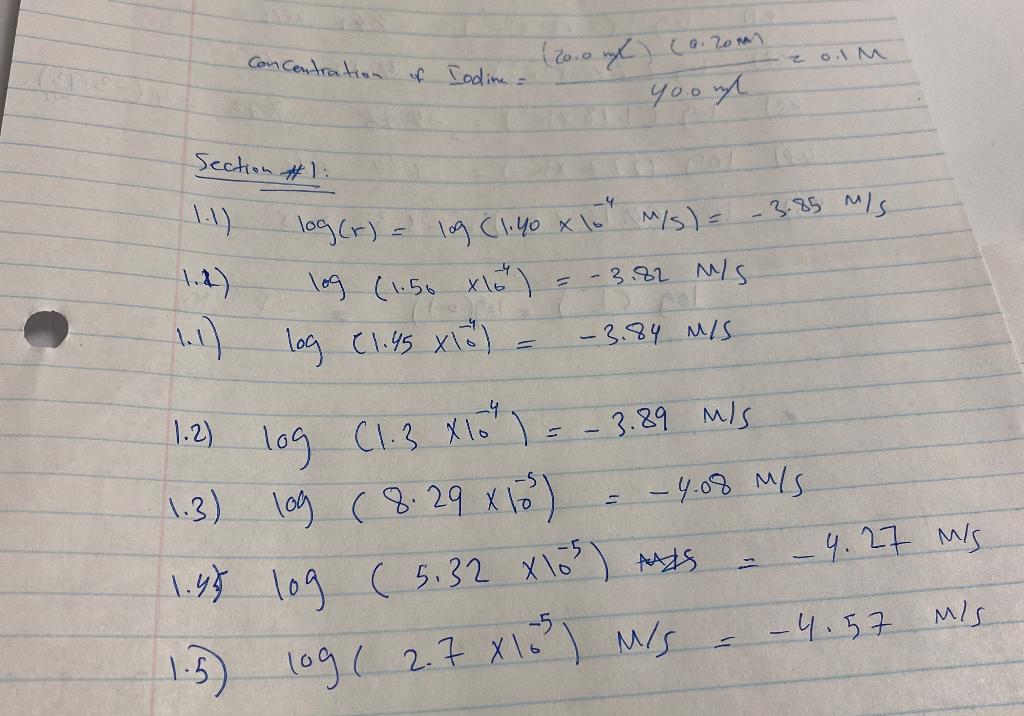 Concentration of Iodine = (20.0 mL) (0.20M) / 40.0 mL = 0.1 M
Section #1:
1.1) log(r) = log (1.40 x10⁻⁴ M/S) = -3.85 M/S
1.1) log (1.50 x10⁻⁴) = -3.82 M/S
1.1) log (1.45 x10⁻⁴) = -3.84 M/S
1.2) log (1.3 x10⁻⁴) = -3.89 M/S
1.3) log (8.29 x10⁻⁵) = -4.08 M/S
1.4) log (5.32 x10⁻⁵) = -4.27 M/S
1.5) log ( 2.7 x10⁻⁵) M/S = -4.57 M/S